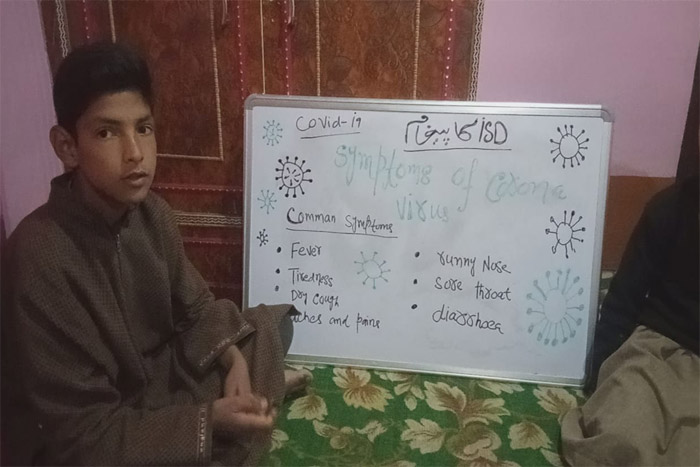 Covid-19
ISD کا پیغام
Symptoms of Corona
Virus
Comman Symptoms
• Fever
• Tiredness
• Dry Cough
aches and pains
• runny Nose
• Sore throat
• diarrhoea